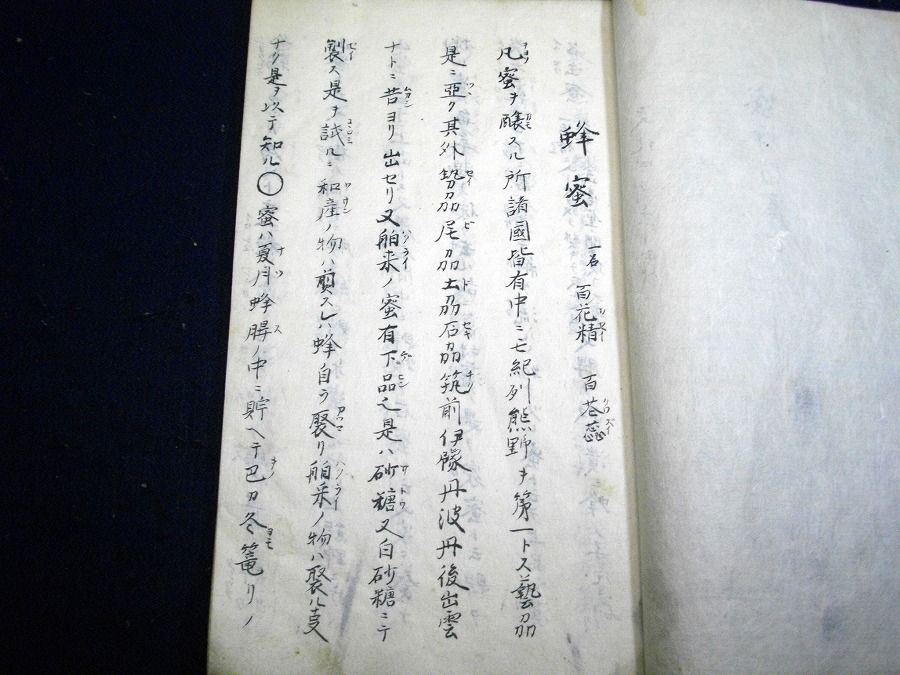 蜂蜜 一名 百花精 百花蕊
凡蜜ヲ醸スル所諸國皆有中ニモ紀州熊野ヲ第一トス藝州
是ニ亞ク其外勢州尾州土州石州筑前伊豫丹波丹後出雲
ナトニ昔ヨリ出セリ又舶来ノ蜜有下品也是ハ砂糖又白砂糖ニテ
製ス是ヲ試ルニ和産ノ物ハ煎スレハ蜂自ラ聚リ舶来ノ物ハ聚ル支
ナク是ヲ以テ知ル○蜜ハ夏月蜂脾ノ中ニ貯ヘテ己カ冬篭リノ